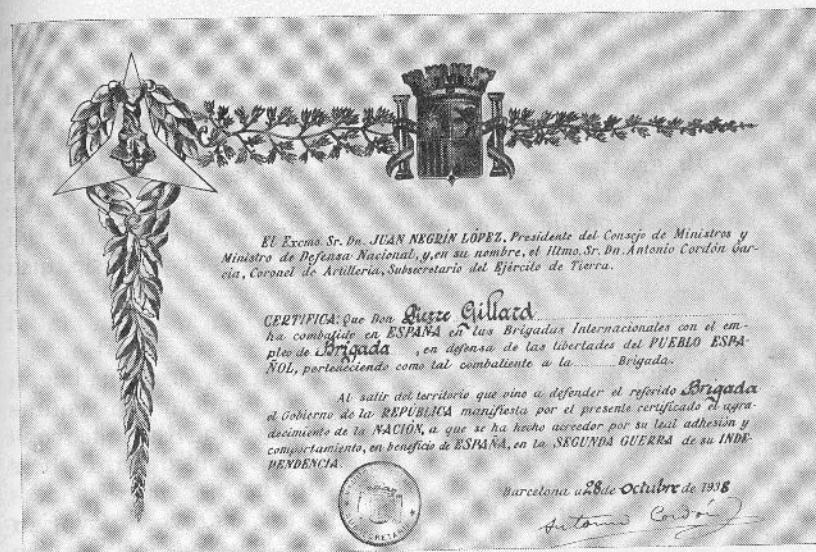 El Excmo. Sr. Dn. JUAN NEGRÍN LÓPEZ, Presidente del Consejo de Ministros y
Ministro de Defensa Nacional, y, en su nombre, el Iltmo. Sr. Dn. Antonio Cordón Gar-
cía, Coronel de Artillería, Subsecretario del Ejército de Tierra.
CERTIFICA: Que Don Pierre Gillard
ha combatido en ESPAÑA en las Brigadas Internacionales con el em-
pleo de Brigada, en defensa de las libertades del PUEBLO ESPA-
ÑOL, perteneciendo como tal combatiente a la ........ Brigada.
Al salir del territorio que vino a defender el referido Brigada
el Gobierno de la REPÚBLICA manifiesta por el presente certificado el agra-
decimiento de la NACIÓN, a que se ha hecho acreedor por su leal adhesión y
comportamiento, en beneficio de ESPAÑA, en la SEGUNDA GUERRA de su INDE-
PENDENCIA.
Barcelona a 28 de Octubre de 1938
Antonio Cordón